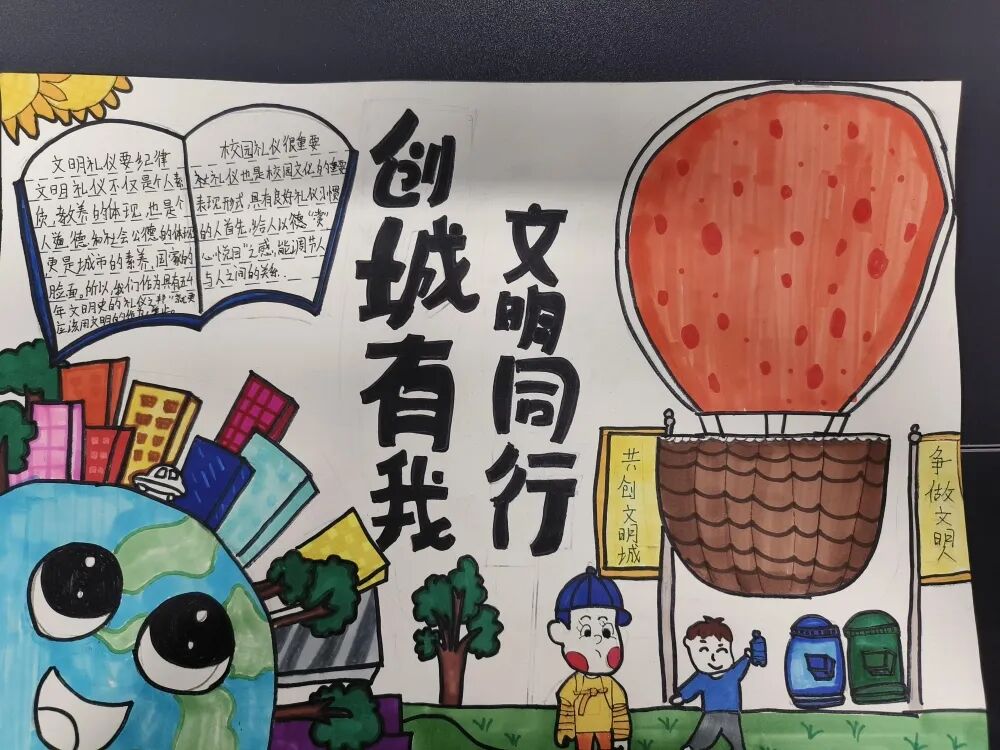 文明礼仪要纪律
文明礼仪不仅是个人素
质,教养的体现,也是个
人道德和社会公德的体现
更是城市的素养,国家的
脸面。所以,我们作为具有
年文明史的"礼仪之邦"
应该用文明的
校园礼仪很重要
礼仪也是校园文化的重要
表现形式,具有良好礼仪习惯
的人首先给人以德"美"
心悦目"之感,能调节人
与人之间的关系.
创城有我
文明同行
共创文明城
争做文明人